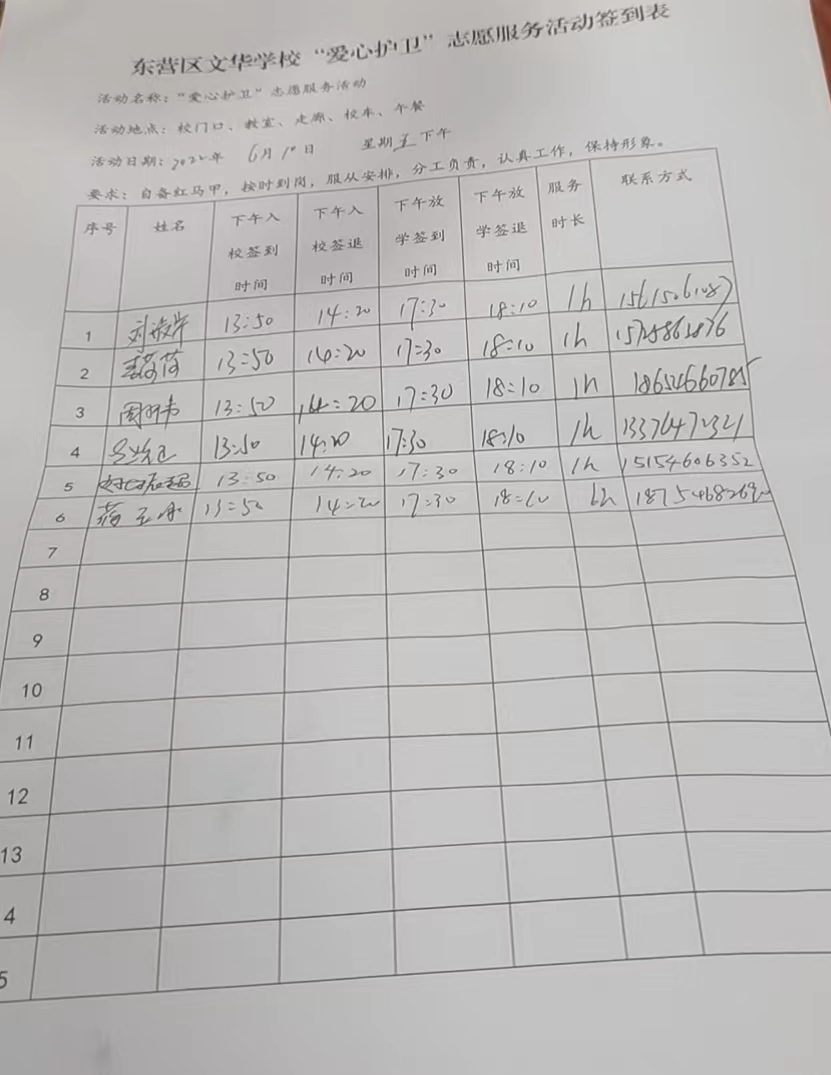 东营区文华学校“爱心护卫”志愿服务活动签到表
活动名称：“爱心护卫”志愿服务活动
活动地点：校门口、教室、走廊、校车、午餐
活动日期：年 6月10日 星期五下午
要求：自备红马甲，按时到岗，服从安排，分工负责，认真工作，保持形象。
序号 姓名 下午入校签到时间 下午入校签退时间 下午放学签到时间 下午放学签退时间 服务时长 联系方式
1 13:50 14:20 17:30 18:10 1h
2 13:50 14:20 17:30 18:10 1h
3 13:50 14:20 17:30 18:10 1h
4 13:50 14:20 17:30 18:10 1h
5 13:50 14:20 17:30 18:10 1h 15154606352
6 13:50 14:20 17:30 1h
7
8
9
10
11
12
13
4
5